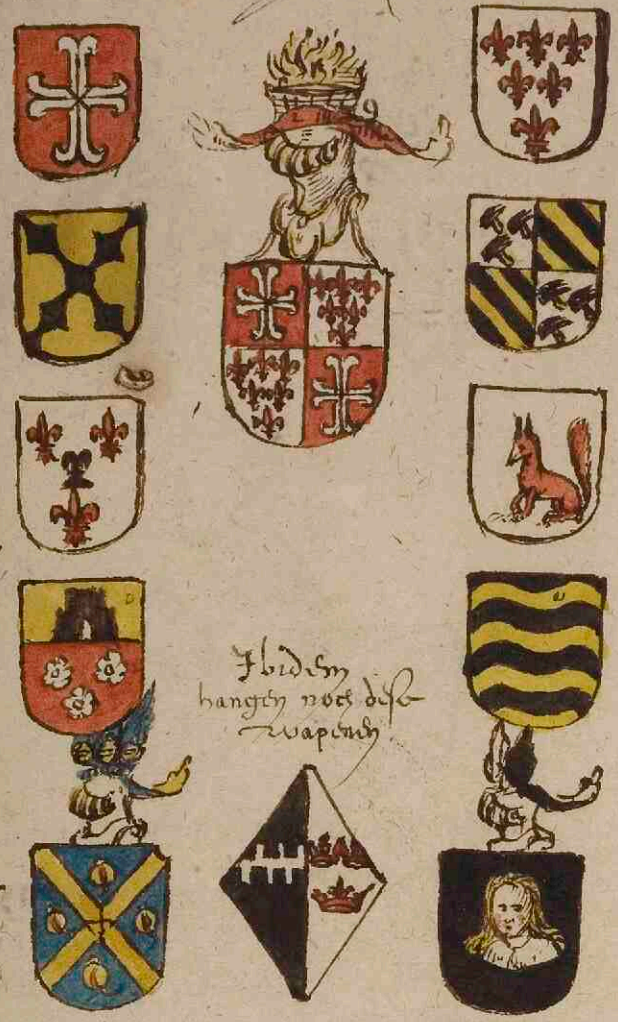 Ibidem
hangen noch dese
wapenen